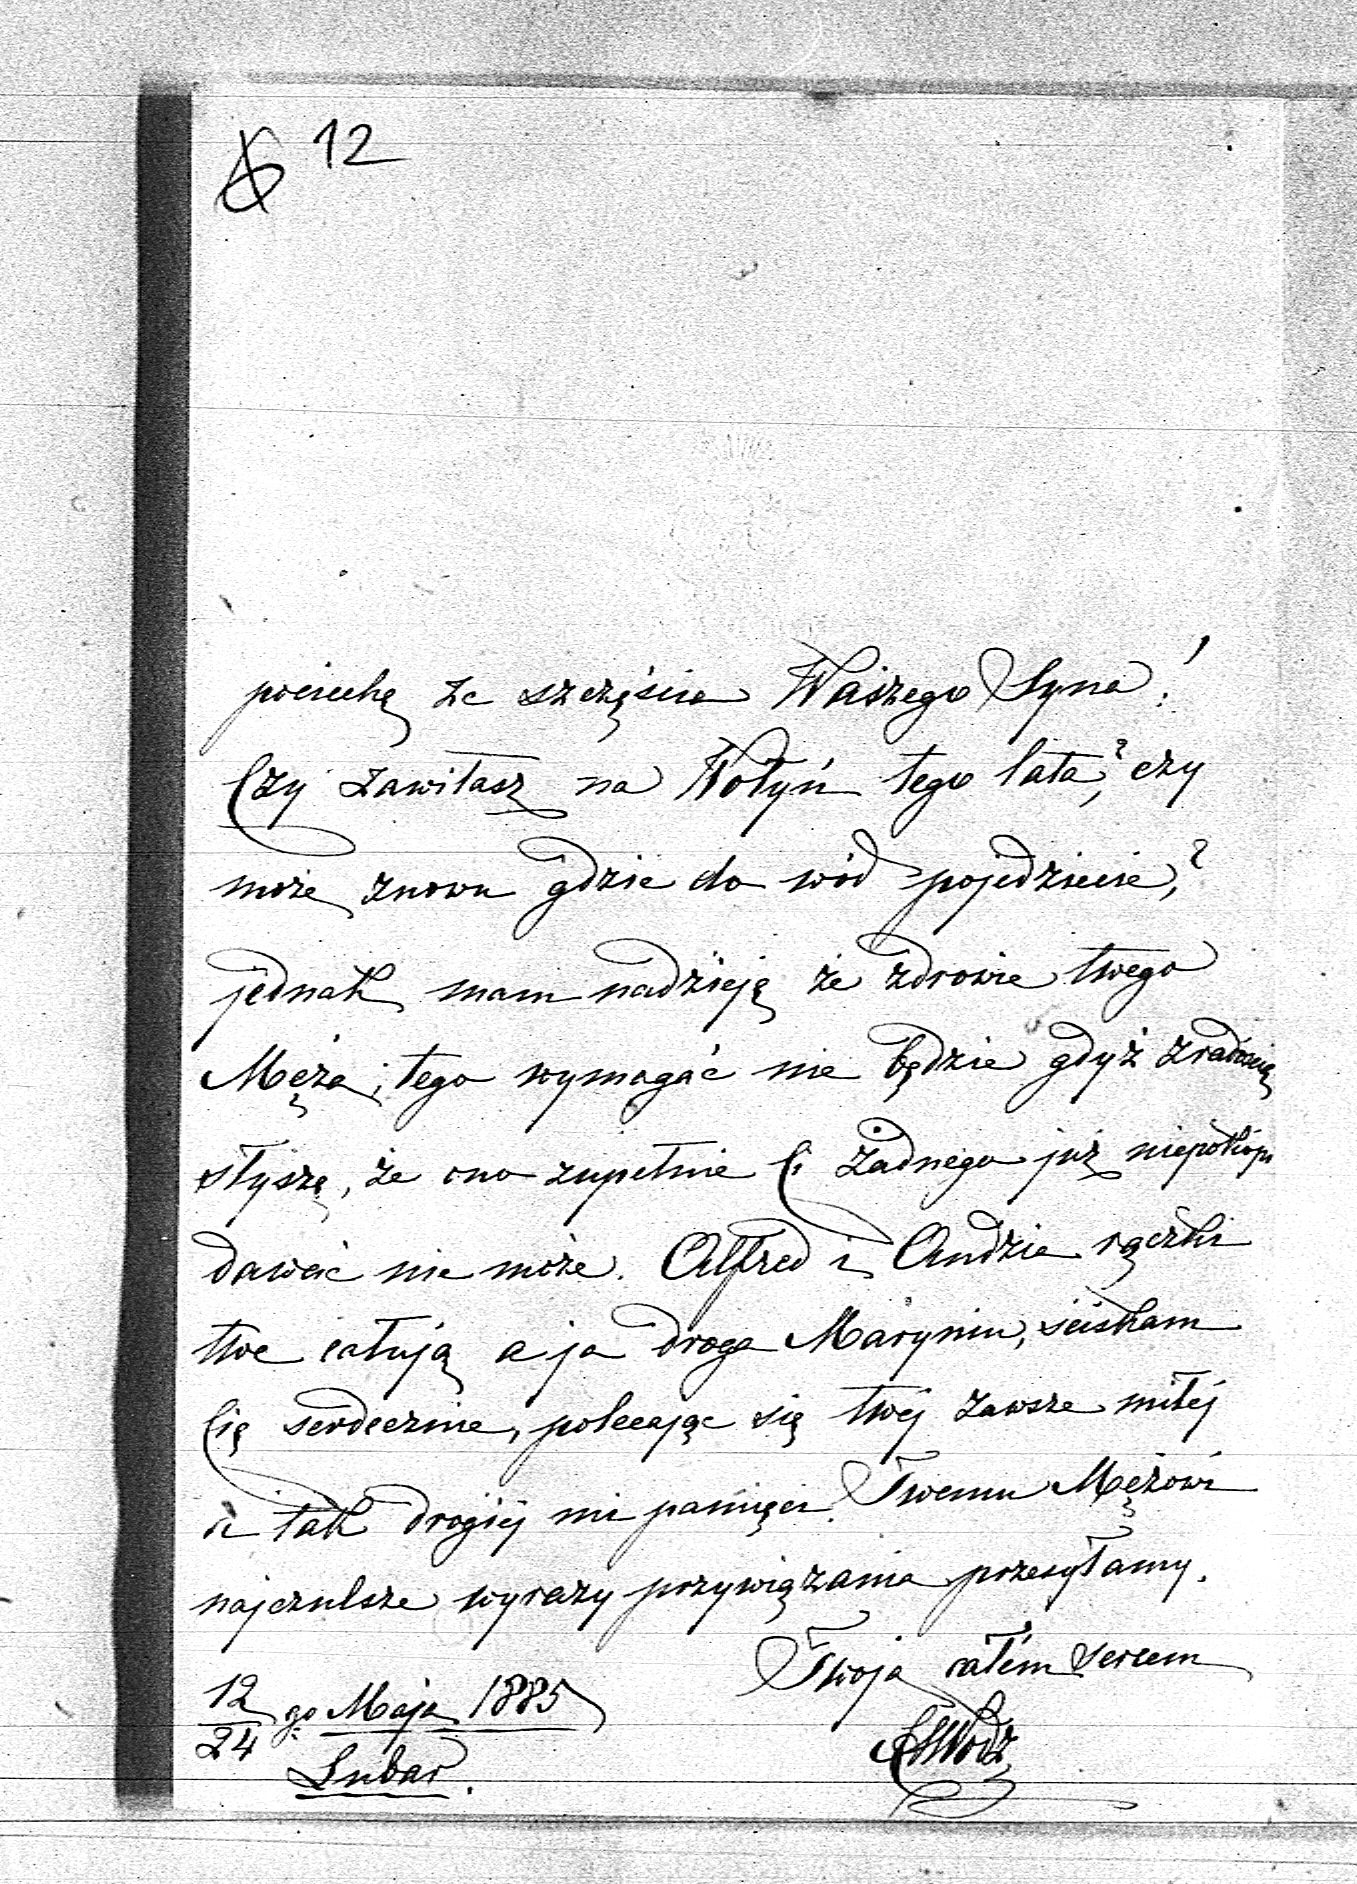 12
pociechę ze szczęścia Waszego Syna!
Czy zawitasz na Wołyń tego lata,? czy
może znowu gdzie do wód pojedziecie,?
jednak mam nadzieję że zdrowie twego
Męża; tego wymagać nie będzie gdyż z radością
słyszę, że ono zupełnie Ci żadnego już niepokoju
dawać nie może. Alfred i Andzia rączki
twe całują a ja droga Maryniu, ściskam
Cię serdecznie, polecając się twéj zawsze miłéj
i tak drogiéj mi pamięci. Twemu Mężowi
najczulsze wyrazy przywiązania przesyłamy.
Twoja całém sercem
12/24 go Maja 1885
Lubar.